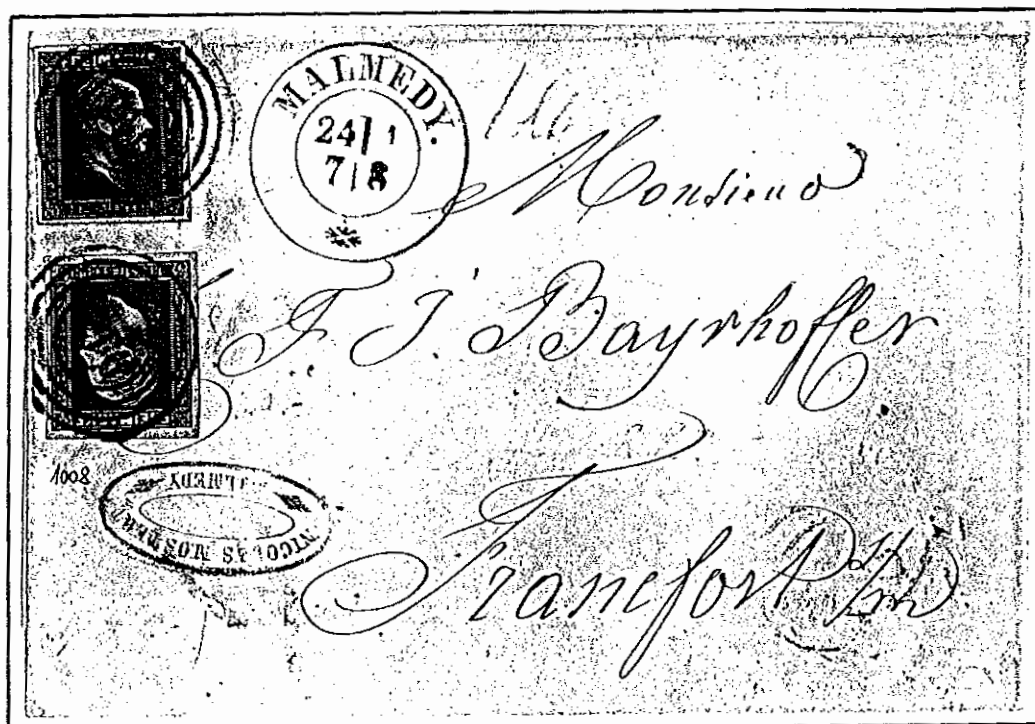 MALMEDY.
24 1
7 8
Monsieur
F. J. Bayrhoffer
Francfort s/m
1008
NICOLAS